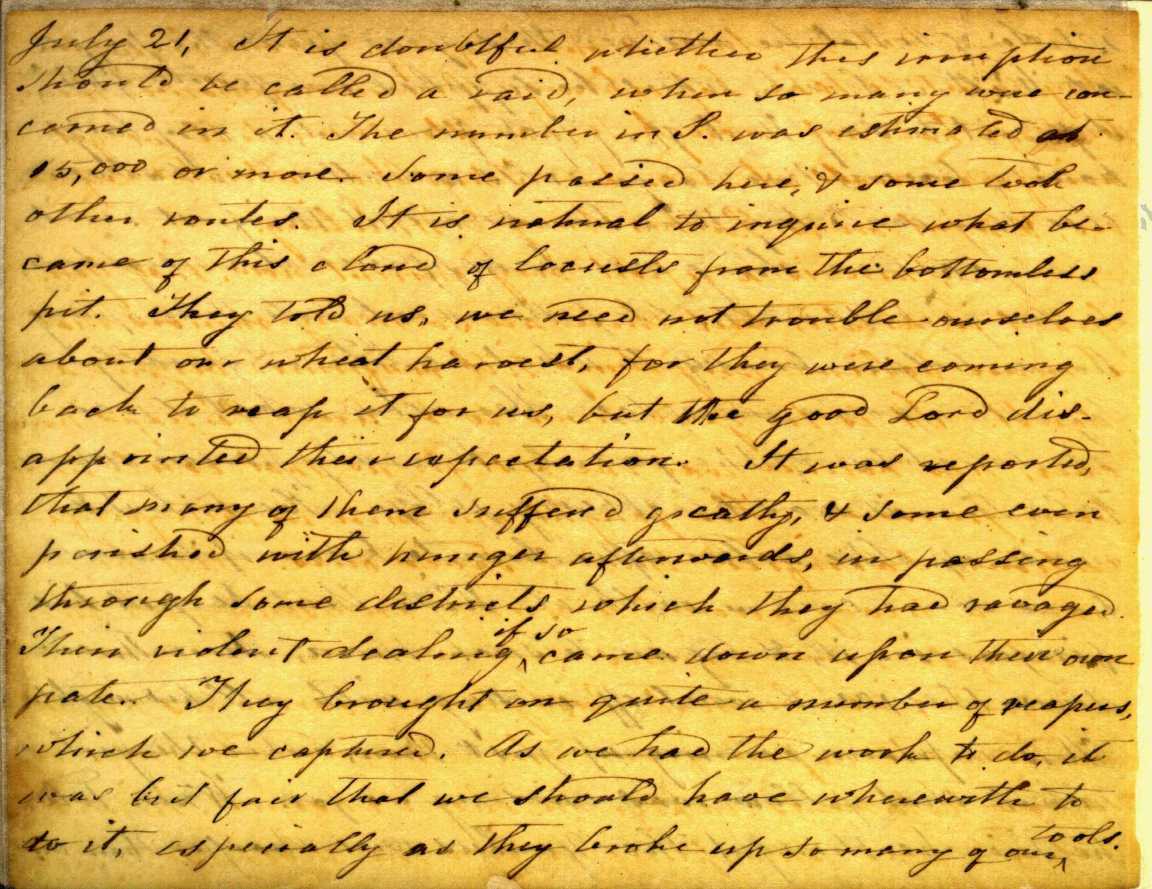 July 21, It is doubtful whether this irruption
should be called a raid, when so many were con-
cerned in it. The number in S. was estimated at
15,000 or more. Some passed here, & some took
other routes. It is natural to inquire what be-
came of this cloud of locusts from the bottomless
pit. They told us, we need not trouble ourselves
about our wheat harvest, for they were coming
back to reap it for us, but the good Lord dis-
appointed their expectation. It was reported,
that many of them suffered greatly, & some even
perished with hunger afterwards, in passing
through some districts which they had ravaged.
Their violent dealing, if so, came down upon their own
pate. They brought on quite a number of reapers,
which we captured. As we had the work to do, it
was but fair that we should have wherewith to
do it, especially as they broke up so many of our tools.